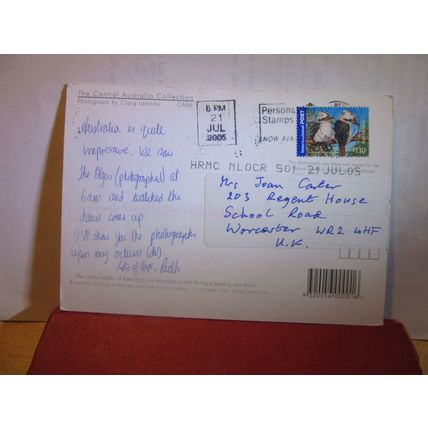 The Central Australia Collection
Photograph by Craig Lamotte
CA86
6 PM
21
JUL
2005
Persona
Stamps
KNOW AVA
International POST
$1.10
HRMC MLOCR 501 21JUL05
Australia is quite
impressive. We saw
the Olgas (photographed) at
6am and watched the
dawn come up.
I'll show you the photographs
upon my return (ok)
Lots of love,
Mrs Joan Carter
203 Regent House
School Road
Worcester WR2 4HF
U.K.
The many heads of Kata Tjuta are
9320056000016